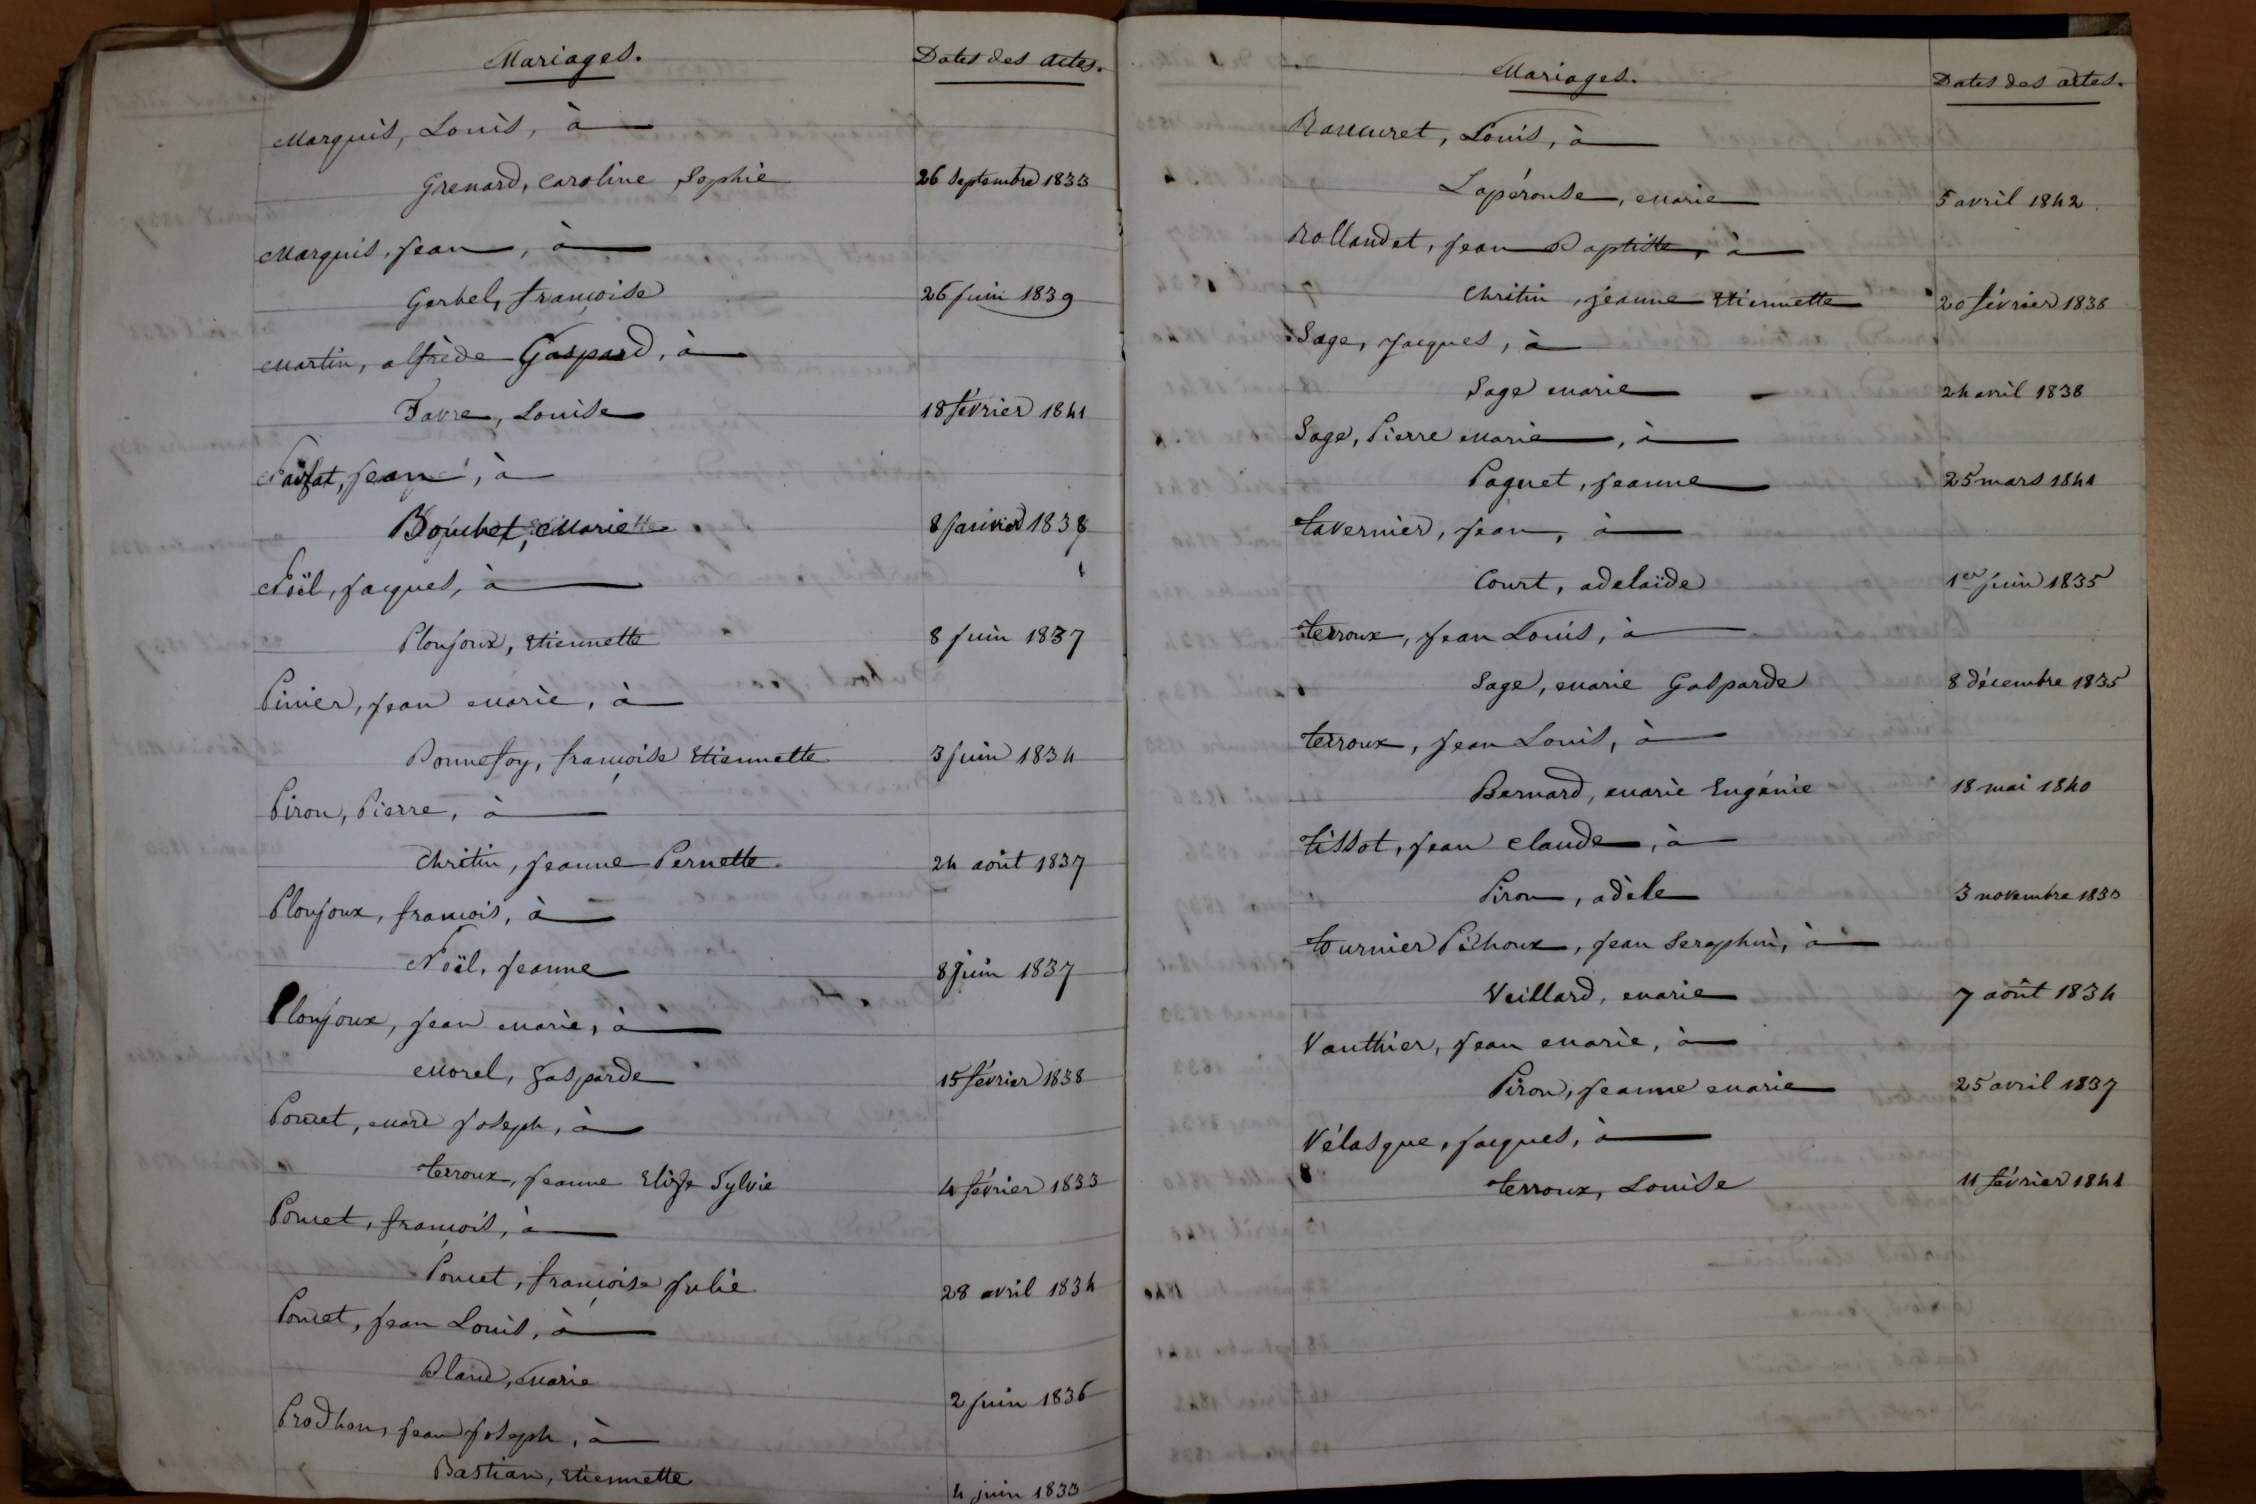 Mariages.
Dates des actes.
Marquis, Louis, à
Grenard, Caroline Sophie
26 Septembre 1833
Marquis, Jean, à
Gerbel, françoise
26 Juin 1839
Martin, alfrède Gaspard, à
Favre, Louise
18 février 1841
Jean, à
Bouchet, Mariette
8 Janvier 1838
Noël, Jacques, à
Ploujoux, Etiennette
8 Juin 1837
Pinier, Jean Marie, à
Bonnefoy, françoise Etiennette
3 Juin 1834
Piron, Pierre, à
Chritin, Jeanne Pernette
24 août 1837
Ploujoux, françois, à
Noël, Jeanne
8 Juin 1837
Ploujoux, Jean Marie, à
Morel, Gasparde
15 février 1838
Poncet, Marc Joseph, à
Terroux, Jeanne Elize Sylvie
4 février 1833
Poncet, françois, à
Poncet, françoise Julie
28 avril 1834
Poncet, Jean Louis, à
Blanc, Marie
2 Juin 1836
Prodhon, Jean Joseph, à
Bastian, Etiennette
4 juin 1833
Mariages.
Dates des actes.
Louis, à
Lapérouse, Marie
5 avril 1842.
Rollandet, Jean Baptiste, à
Chritin, Jeanne Etiennette
20 février 1838
Sage, Jacques, à
Sage Marie
24 avril 1838
Sage, Pierre Marie, à
Paquet, Jeanne
25 mars 1841
Tavernier, Jean, à
Court, adelaïde
1er juin 1835
Terroux, Jean Louis, à
Sage, Marie Gasparde
8 décembre 1835
Terroux, Jean Louis, à
Bernard, Marie Eugénie
18 mai 1840
Tissot, Jean Claude, à
Piron, adèle
3 novembre 1833
Tournier Pichoux, Jean Seraphin, à
Veillard, Marie
7 août 1834
Vauthier, Jean Marie, à
Piron, Jeanne Marie
25 avril 1837
Vélasque, Jacques, à
Terroux, Louise
11 février 1841